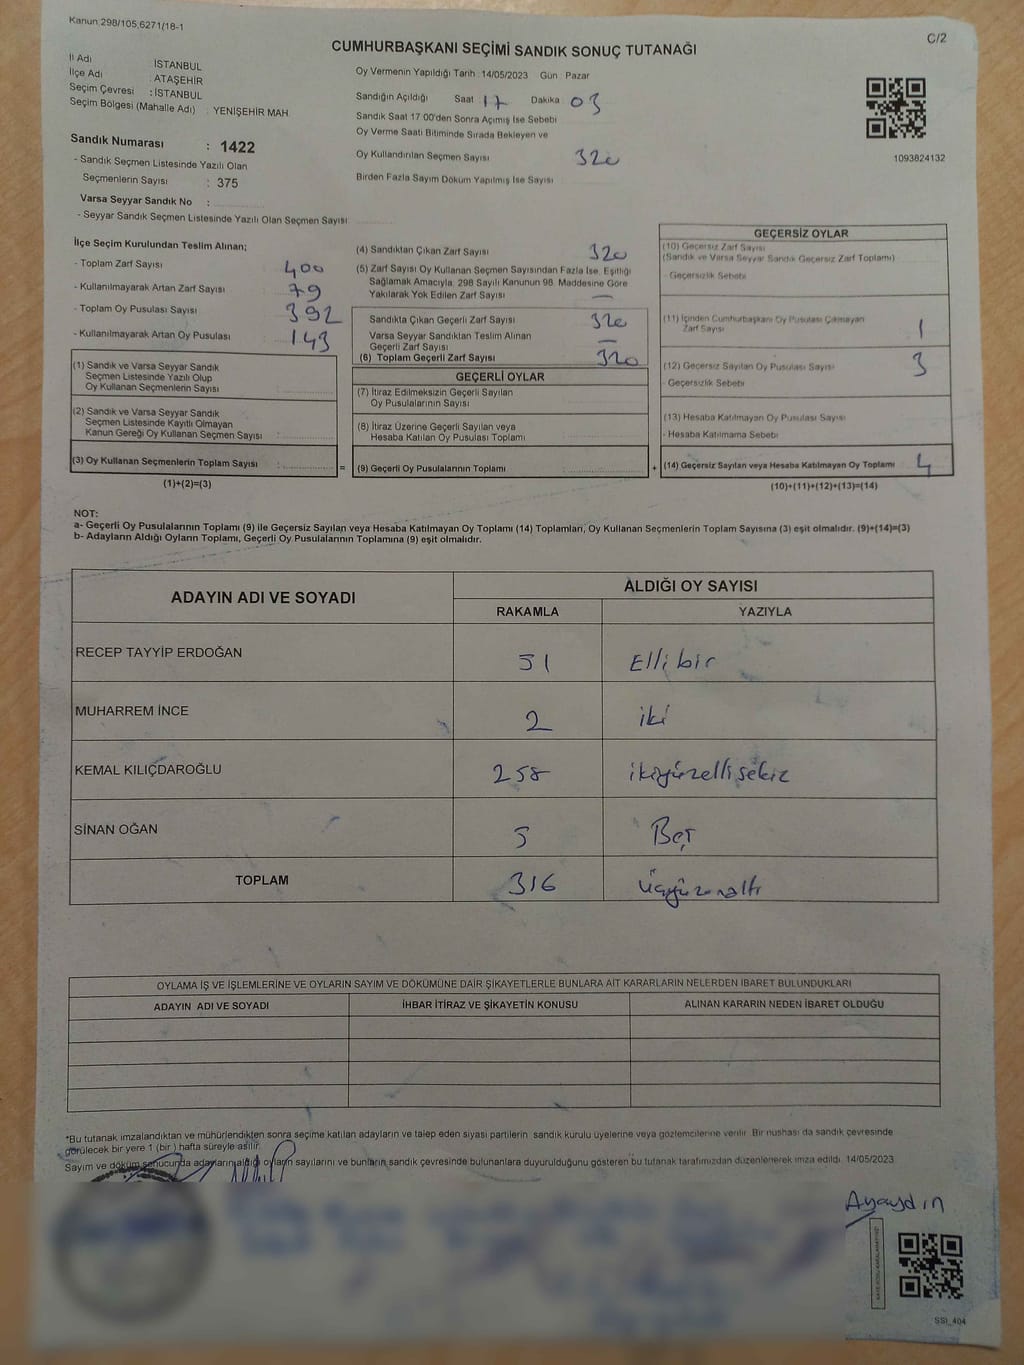 Kanun:298/105,6271/18-1
C/2
CUMHURBAŞKANI SEÇİMİ SANDIK SONUÇ TUTANAĞI
İl Adı İSTANBUL
İlçe Adı : ATAŞEHİR
Seçim Çevresi : İSTANBUL
Seçim Bölgesi (Mahalle Adı) : YENİŞEHİR MAH
Sandık Numarası : 1422
- Sandık Seçmen Listesinde Yazılı Olan
Seçmenlerin Sayısı : 375
Varsa Seyyar Sandık No :
- Seyyar Sandık Seçmen Listesinde Yazılı Olan Seçmen Sayısı
Oy Vermenin Yapıldığı Tarih : 14/05/2023 Gün Pazar
Sandığın Açıldığı Saat 17 Dakika 03
Sandık Saat 17 00'den Sonra Açımış İse Sebebi
Oy Verme Saati Bitiminde Sırada Bekleyen ve
Oy Kullandırılan Seçmen Sayısı 320
Birden Fazla Sayım Döküm Yapılmış İse Sayısı
1093824132
İlçe Seçim Kurulundan Teslim Alınan;
- Toplam Zarf Sayısı 400
- Kullanılmayarak Artan Zarf Sayısı 79
- Toplam Oy Pusulası Sayısı 392
- Kullanılmayarak Artan Oy Pusulası 143
(1) Sandık ve Varsa Seyyar Sandık
Seçmen Listesinde Yazılı Olup
Oy Kullanan Seçmenlerin Sayısı :
(2) Sandık ve Varsa Seyyar Sandık
Seçmen Listesinde Kayıtlı Olmayan
Kanun Gereği Oy Kullanan Seçmen Sayısı :
(3) Oy Kullanan Seçmenlerin Toplam Sayısı :
(1)+(2)=(3)
(4) Sandıktan Çıkan Zarf Sayısı 320
(5) Zarf Sayısı Oy Kullanan Seçmen Sayısından Fazla İse, Eşitliği
Sağlamak Amacıyla, 298 Sayılı Kanunun 98. Maddesine Göre
Yakılarak Yok Edilen Zarf Sayısı —
Sandıkta Çıkan Geçerli Zarf Sayısı 320
Varsa Seyyar Sandıktan Teslim Alınan
Geçerli Zarf Sayısı —
(6) Toplam Geçerli Zarf Sayısı 320
GEÇERLİ OYLAR
(7) İtiraz Edilmeksizin Geçerli Sayılan
Oy Pusulalarının Sayısı
(8) İtiraz Üzerine Geçerli Sayılan veya
Hesaba Katılan Oy Pusulası Toplamı
= (9) Geçerli Oy Pusulalarının Toplamı : +
GEÇERSİZ OYLAR
(10) Geçersiz Zarf Sayısı
(Sandık ve Varsa Seyyar Sandık Geçersiz Zarf Toplamı)
- Geçersizlik Sebebi
(11) İçinden Cumhurbaşkanı Oy Pusulası Çıkmayan
Zarf Sayısı 1
(12) Geçersiz Sayılan Oy Pusulası Sayısı 3
- Geçersizlik Sebebi
(13) Hesaba Katılmayan Oy Pusulası Sayısı
- Hesaba Katılmama Sebebi
(14) Geçersiz Sayılan veya Hesaba Katılmayan Oy Toplamı 4
(10)+(11)+(12)+(13)=(14)
NOT:
a- Geçerli Oy Pusulalarının Toplamı (9) ile Geçersiz Sayılan veya Hesaba Katılmayan Oy Toplamı (14) Toplamları, Oy Kullanan Seçmenlerin Toplam Sayısına (3) eşit olmalıdır. (9)+(14)=(3)
b- Adayların Aldığı Oyların Toplamı, Geçerli Oy Pusulalarının Toplamına (9) eşit olmalıdır.
ADAYIN ADI VE SOYADI
ALDIĞI OY SAYISI
RAKAMLA YAZIYLA
RECEP TAYYİP ERDOĞAN 51 Elli bir
MUHARREM İNCE 2 iki
KEMAL KILIÇDAROĞLU 258 ikiyüzellisekiz
SİNAN OĞAN 5 Beş
TOPLAM 316 üçyüzonaltı
OYLAMA İŞ VE İŞLEMLERİNE VE OYLARIN SAYIM VE DÖKÜMÜNE DAİR ŞİKAYETLERLE BUNLARA AİT KARARLARIN NELERDEN İBARET BULUNDUKLARI
ADAYIN ADI VE SOYADI İHBAR İTİRAZ VE ŞİKAYETİN KONUSU ALINAN KARARIN NEDEN İBARET OLDUĞU
*Bu tutanak imzalandıktan ve mühürlendikten sonra seçime katılan adayların ve talep eden siyasi partilerin sandık kurulu üyelerine veya gözlemcilerine verilir. Bir nüshası da sandık çevresinde
görülecek bir yere 1 (bir ) hafta süreyle asılır.
Sayım ve döküm sonucunda adayların aldığı oyların sayılarını ve bunların sandık çevresinde bulunanlara duyurulduğunu gösteren bu tutanak tarafımızdan düzenlenerek imza edildi. 14/05/2023
Ayaydın
SSI_404